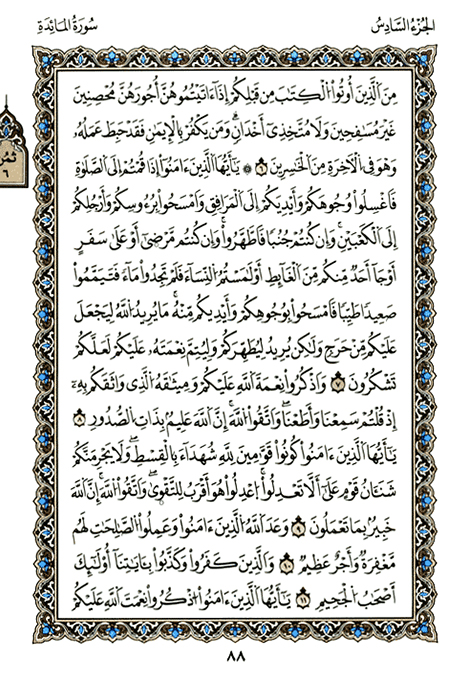 الجزء السادس
سورة المائدة
مِنَ اَ۬لذِينَ أُوتُواْ اُ۬لْكِتَٰبَ مِن قَبْلِكُمُۥٓ إِذَآ ءَاتَيْتُمُوهُنَّ أُجُورَهُنَّ مُحْصِنِينَ
غَيْرَ مُسَٰفِحِينَ وَلَا مُتَّخِذِےٓ أَخْدَانٖۖ وَمَنْ يَّكْفُرْ بِالْإِيمَٰنِ فَقَدْ حَبِطَ عَمَلُهُۥ
وَهُوَ فِے اِ۬لْأٓخِرَةِ مِنَ اَ۬لْخَٰسِرِينَۖ ٦ ۞ يَٰٓأَيُّهَا اَ۬لذِينَ ءَامَنُوٓاْ إِذَا قُمْتُمُۥٓ إِلَى اَ۬لصَّلَوٰةِ
فَاغْسِلُواْ وُجُوهَكُمْ وَأَيْدِيَكُمُۥٓ إِلَى اَ۬لْمَرَافِقِ وَامْسَحُواْ بِرُءُوسِكُمْ وَأَرْجُلَكُمُۥٓ
إِلَى اَ۬لْكَعْبَيْنِۖ وَإِن كُنتُمْ جُنُباٗ فَاطَّهَّرُواْۖ وَإِن كُنتُم مَّرْضَىٰٓ أَوْ عَلَىٰ سَفَرٍ
اَوْ جَآءَ احَدٞ مِّنكُم مِّنَ اَ۬لْغَآئِطِ أَوْ لَٰمَسْتُمُ اُ۬لنِّسَآءَ فَلَمْ تَجِدُواْ مَآءٗ فَتَيَمَّمُواْ
صَعِيداٗ طَيِّباٗ فَامْسَحُواْ بِوُجُوهِكُمْ وَأَيْدِيكُم مِّنْهُۖ مَا يُرِيدُ اُ۬للَّهُ لِيَجْعَلَ
عَلَيْكُم مِّنْ حَرَجٖۖ وَلَٰكِنْ يُّرِيدُ لِيُطَهِّرَكُمْ وَلِيُتِمَّ نِعْمَتَهُۥ عَلَيْكُمْ لَعَلَّكُمْ
تَشْكُرُونَۖ ٧ وَاذْكُرُواْ نِعْمَةَ اَ۬للَّهِ عَلَيْكُمْ وَمِيثَٰقَهُ اُ۬لذِے وَاثَقَكُم بِهِۦٓ
إِذْ قُلْتُمْ سَمِعْنَا وَأَطَعْنَاۖ وَاتَّقُواْ اُ۬للَّهَۖ إِنَّ اَ۬للَّهَ عَلِيمُۢ بِذَاتِ اِ۬لصُّدُورِۖ ٨
يَٰٓأَيُّهَا اَ۬لذِينَ ءَامَنُواْ كُونُواْ قَوَّٰمِينَ لِلهِ شُهَدَآءَ بِالْقِسْطِۖ وَلَا يَجْرِمَنَّكُمْ
شَنَـَٔانُ قَوْمٍ عَلَىٰٓ أَلَّا تَعْدِلُواْۖ اُ۪عْدِلُواْ هُوَ أَقْرَبُ لِلتَّقْوَىٰۖ وَاتَّقُواْ اُ۬للَّهَۖ إِنَّ اَ۬للَّهَ
خَبِيرُۢ بِمَا تَعْمَلُونَۖ ٩ وَعَدَ اَ۬للَّهُ اُ۬لذِينَ ءَامَنُواْ وَعَمِلُواْ اُ۬لصَّٰلِحَٰتِ لَهُم
مَّغْفِرَةٞ وَأَجْرٌ عَظِيمٞۖ ١٠ وَالذِينَ كَفَرُواْ وَكَذَّبُواْ بِـَٔايَٰتِنَآ أُوْلَٰٓئِكَ
أَصْحَٰبُ اُ۬لْجَحِيمِۖ ١١ يَٰٓأَيُّهَا اَ۬لذِينَ ءَامَنُواْ اُ۟ذْكُرُواْ نِعْمَتَ اَ۬للَّهِ عَلَيْكُمُۥٓ
ثمن
٦
٨٨